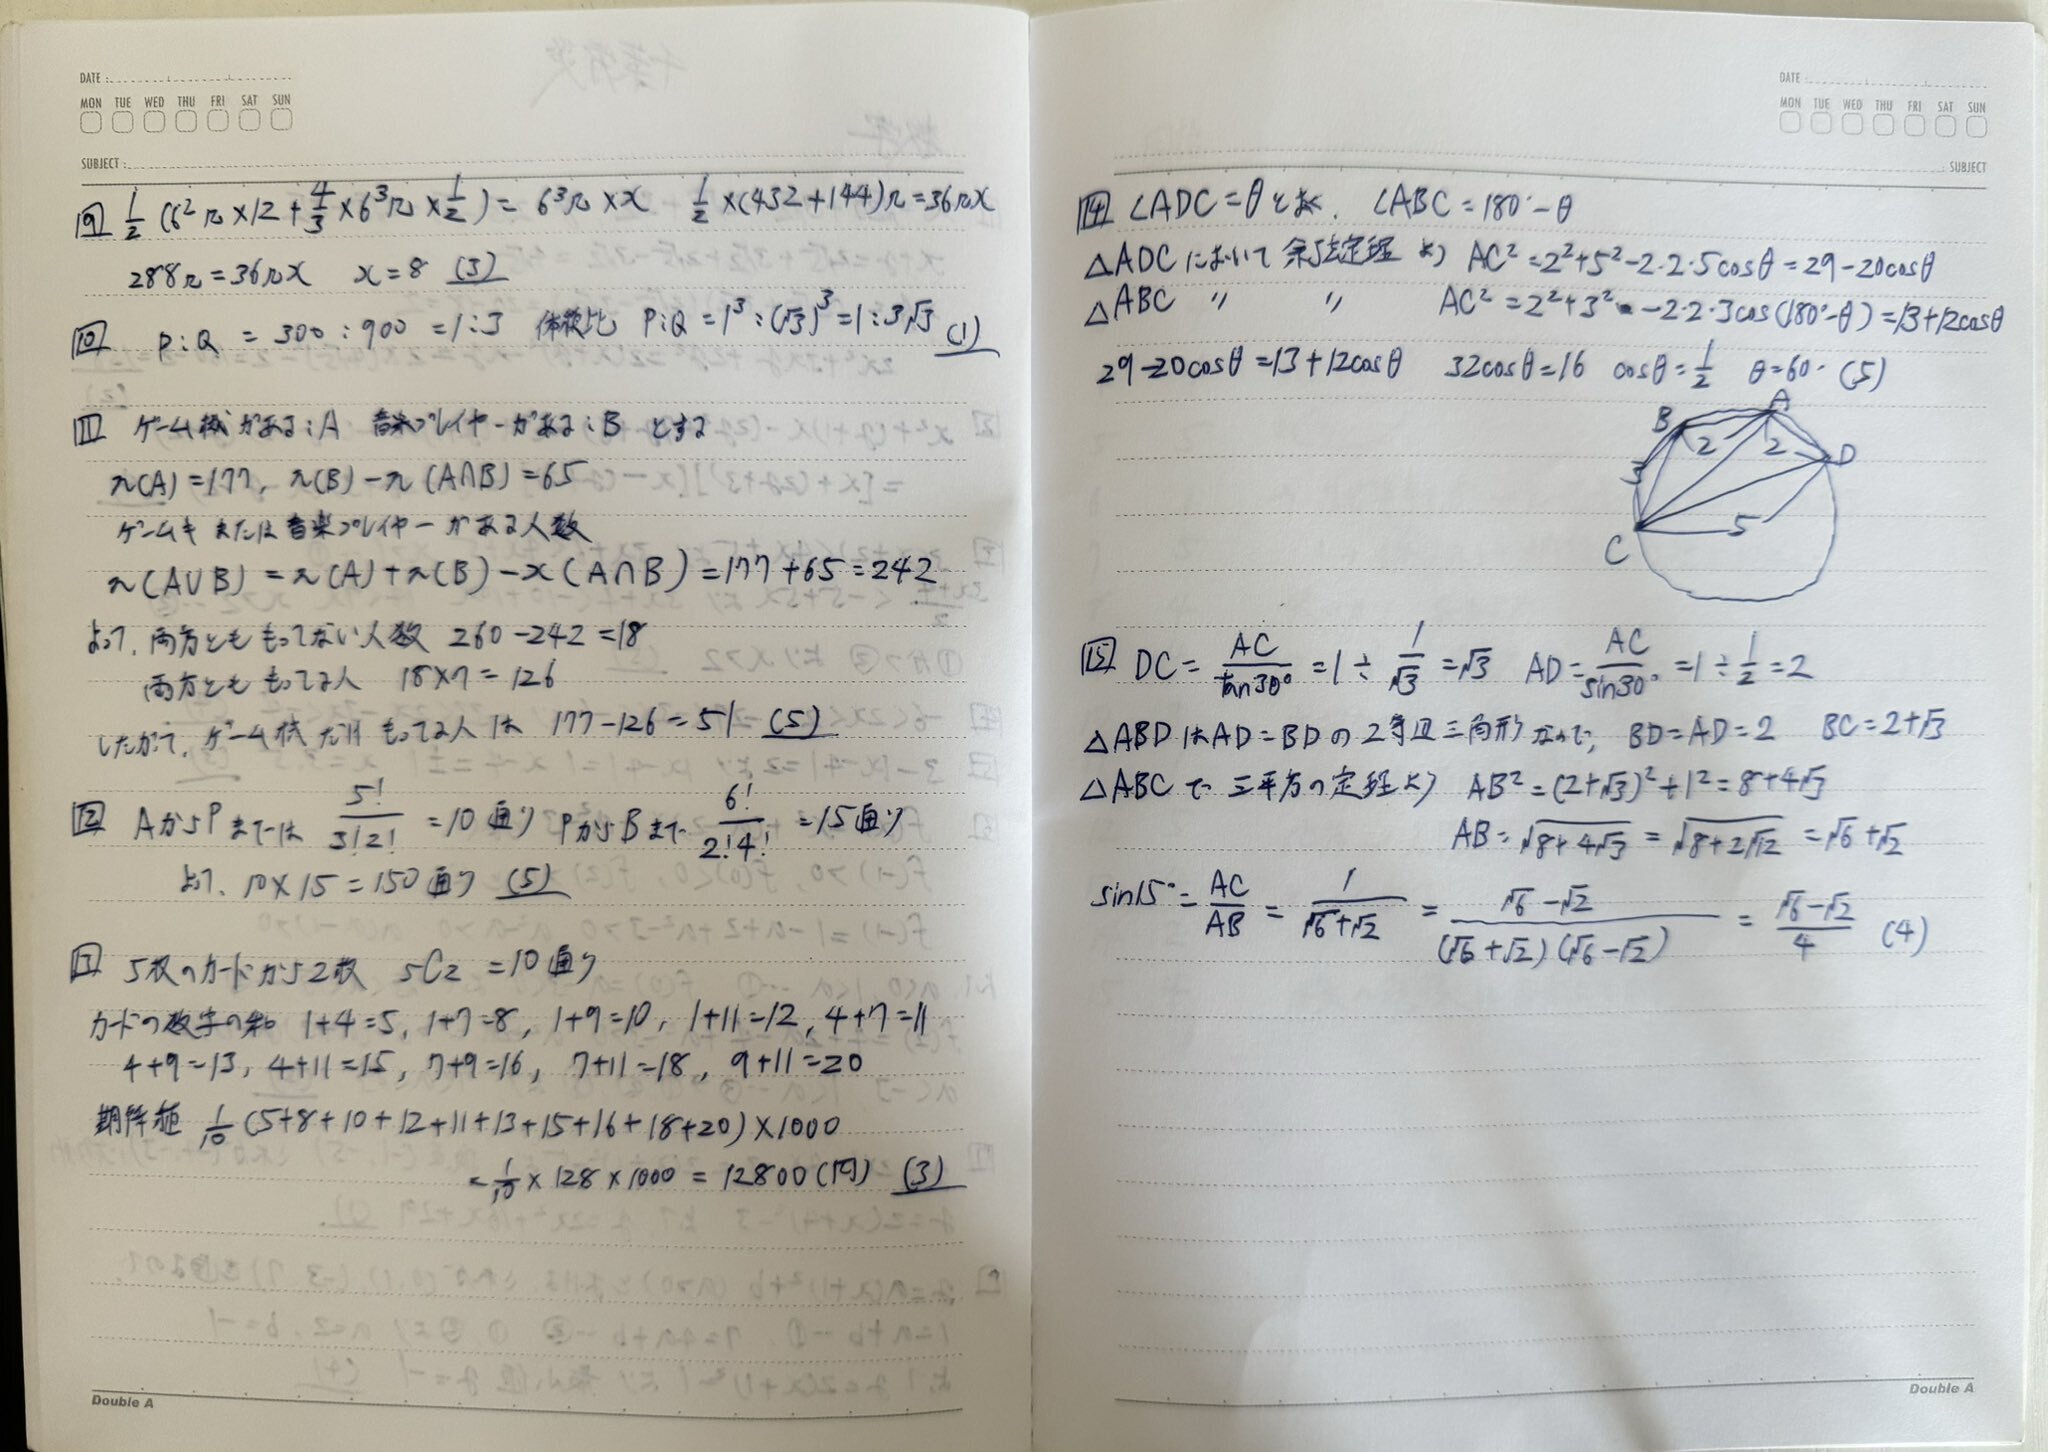 DATE :
MON TUE WED THU FRI SAT SUN
SUBJECT :
[9] 1/2 (6²π×12+4/3×6³π×1/2)= 6³π×x 1/2×(432+144)π=36πx
288π=36πx x=8 (3)
[10] P:Q = 300:900 =1:3 体積比 P:Q=1³:(√3)³=1:3√3 (1)
[11] ゲーム機がある:A 音楽プレイヤーがある:B とする
n(A)=177, n(B)-n(A∩B)=65
ゲームキ または 音楽プレイヤーがある人数
n(A∪B)=n(A)+n(B)-x(A∩B)=177+65=242
よって、両方とももってない人数 260-242=18
両方とももってる人 18×7=126
したがって、ゲーム機だけもってる人は 177-126=51 (5)
[12] AからPまでは 5!/3!2! =10通り PからBまで 6!/2!4! =15通り
よって、10×15=150通り (5)
[13] 5枚のカードから2枚 5C2 =10通り
カードの数字の和 1+4=5, 1+7=8, 1+9=10, 1+11=12, 4+7=11
4+9=13, 4+11=15, 7+9=16, 7+11=18, 9+11=20
期待値 1/10 (5+8+10+12+11+13+15+16+18+20)×1000
=1/10×128×1000=12800(円) (3)
Double A
DATE :
MON TUE WED THU FRI SAT SUN
SUBJECT
[14] ∠ADC=θとおく、 ∠ABC=180°-θ
△ADCにおいて 余弦定理より AC²=2²+5²-2·2·5cosθ=29-20cosθ
△ABC 〃 〃 AC²=2²+3²-2·2·3cos(180°-θ)=13+12cosθ
29-20cosθ=13+12cosθ 32cosθ=16 cosθ=1/2 θ=60° (5)
A
B
2 2 D
3
5
C
[15] DC=AC/tan30°=1÷1/√3=√3 AD=AC/sin30°=1÷1/2=2
△ABDはAD=BDの2等辺三角形なので, BD=AD=2 BC=2+√3
△ABCで三平方の定理より AB²=(2+√3)²+1²=8+4√3
AB=√(8+4√3)=√(8+2√12)=√6+√2
sin15°=AC/AB=1/(√6+√2)=(√6-√2)/(√6+√2)(√6-√2)=(√6-√2)/4 (4)
Double A